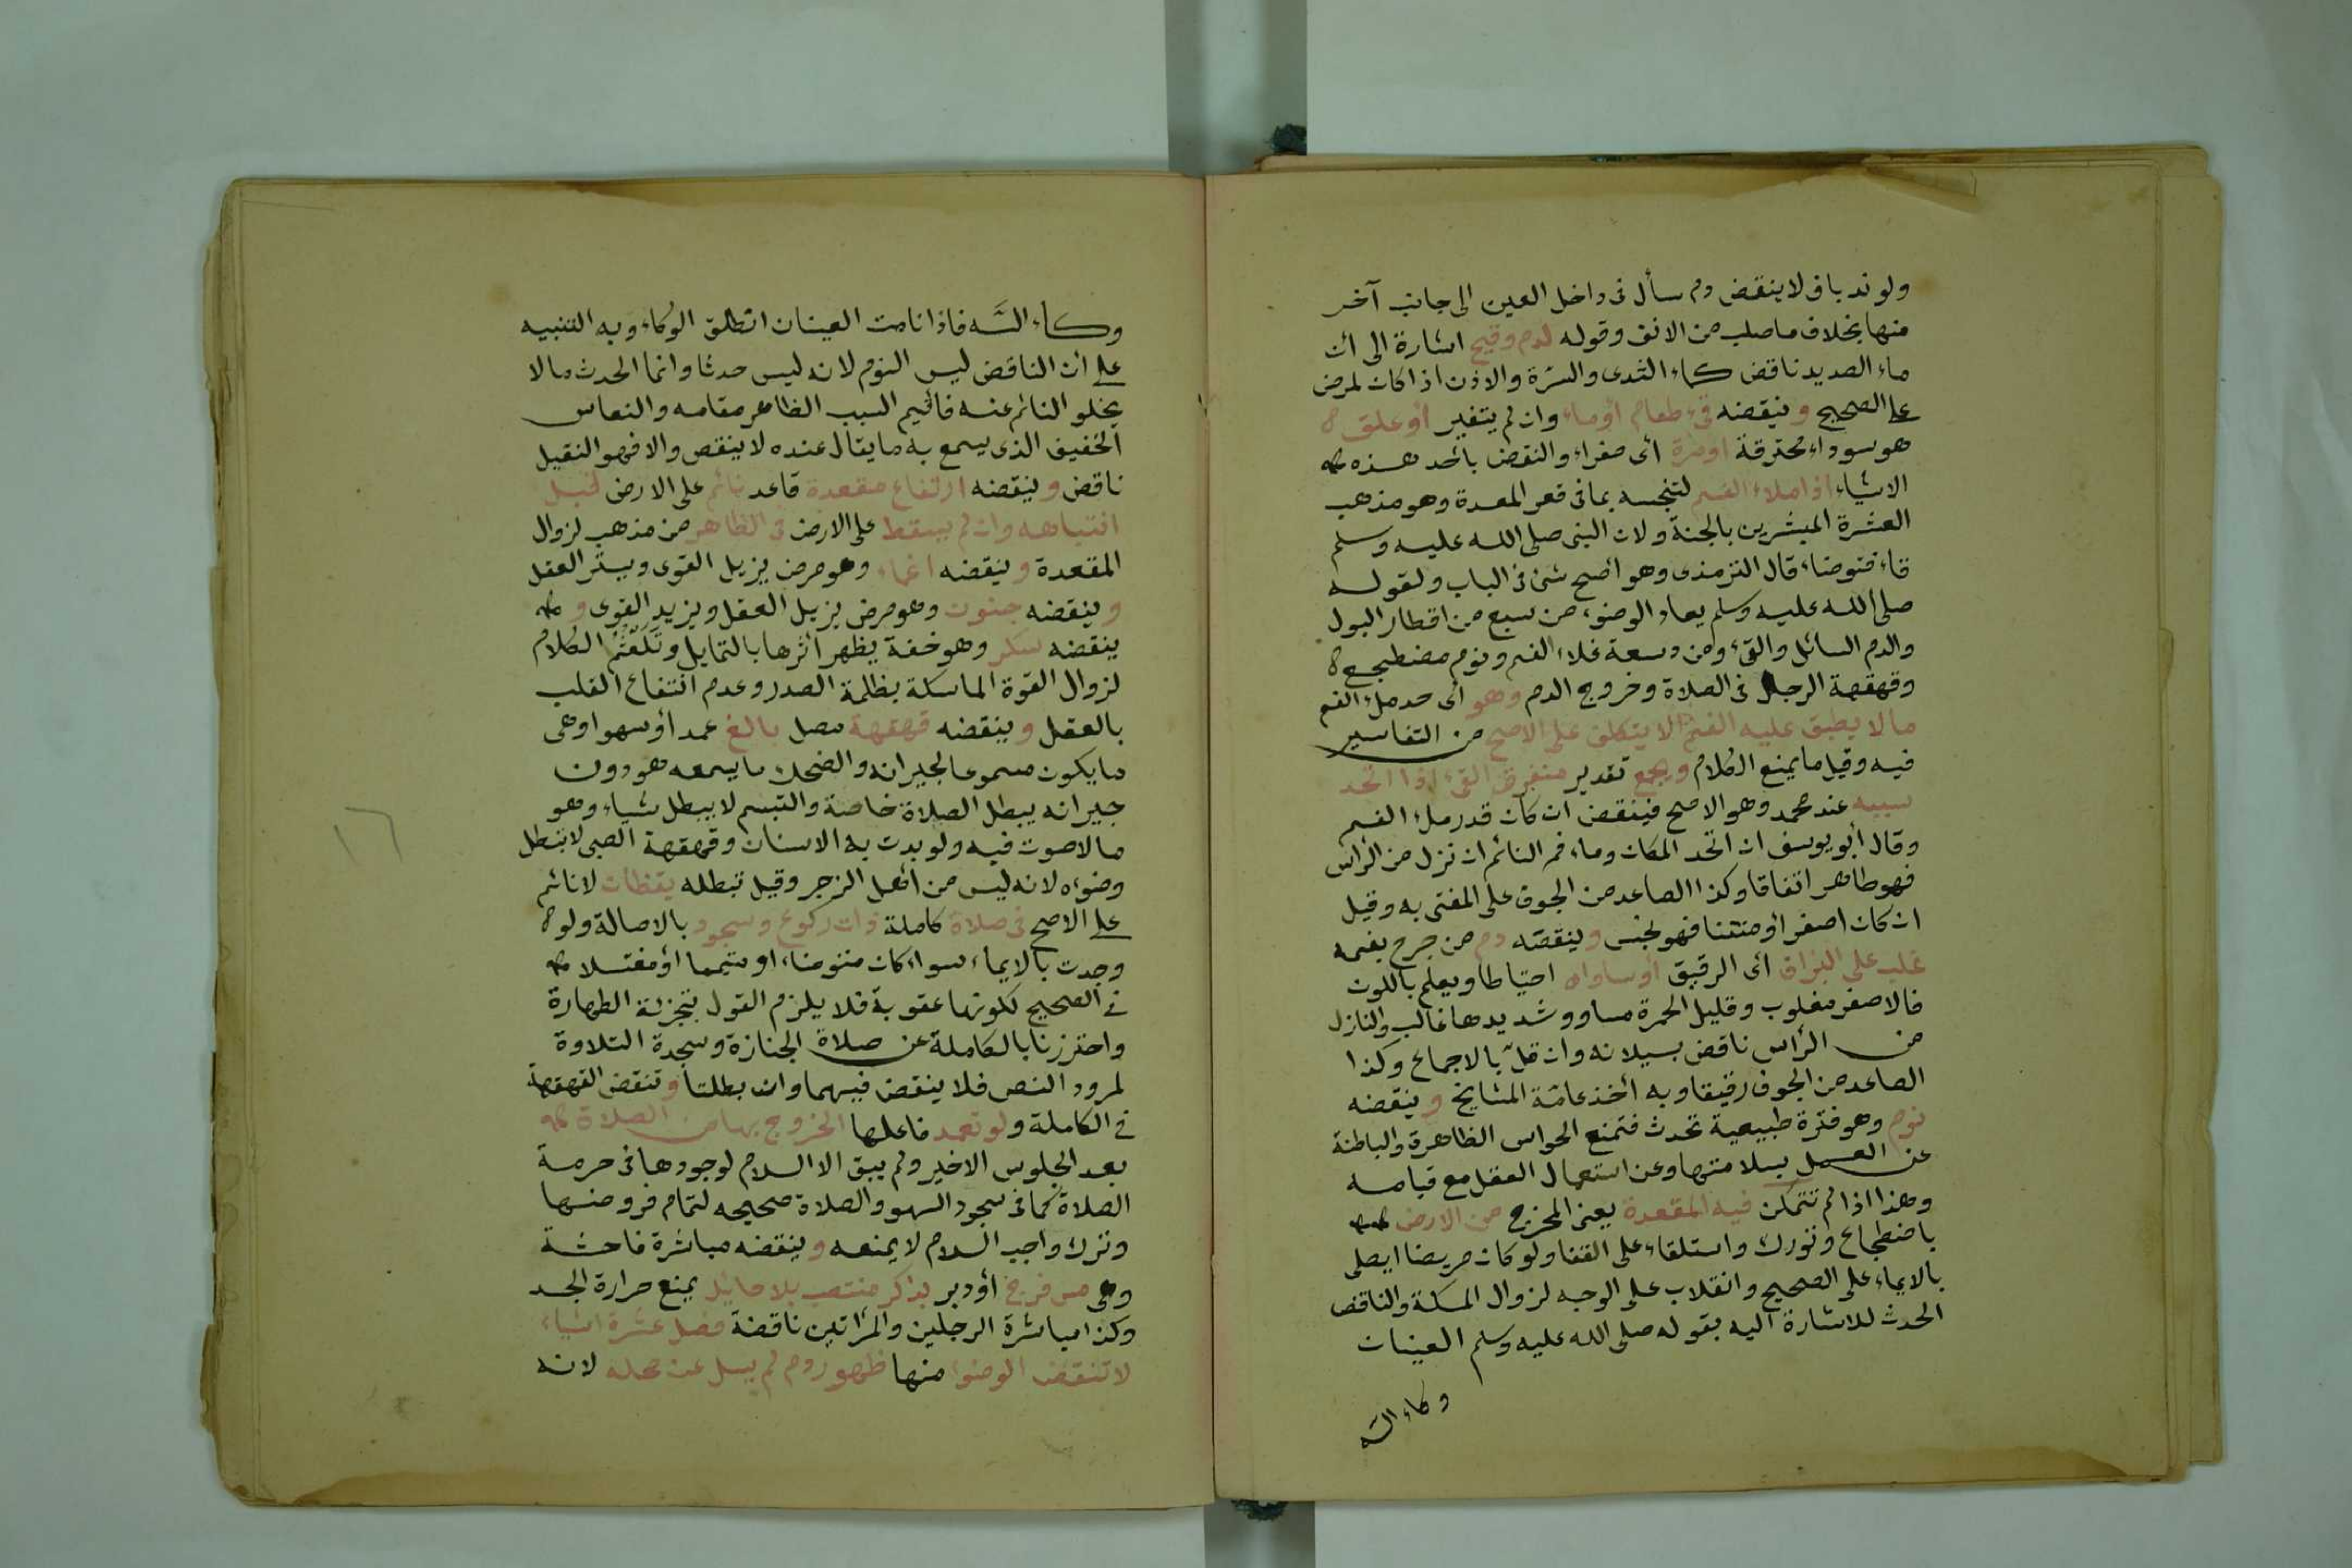 ولو ندبا فلا ينقض دم سأل فى داخل العين الى جانب آخر
منها بخلاف ما صلب من الانف وقوله لدم وقيح اشارة الى ان
ماء الصديد ناقض كماء الثدى والسرة والاذن اذا كان لمرض
على الصحيح وينقضه قىء طعام أو ماء وان لم يتغير أو علق
هو سوداء محترقة او مرة أى صفراء والنقض بأحد هذه
الاشياء اذا ملاء الفم لتنجسه بما فى قعر المعدة وهو مذهب
العشرة المبشرين بالجنة ولان النبى صلى الله عليه وسلم
قاء فتوضاء قال الترمذى وهو أصح شئ فى الباب ولقوله
صلى الله عليه وسلم يعاد الوضوء من سبع من اقطار البول
والدم السائل والقىء ومن دسعة تملاء الفم ونوم مضطجع
وقهقهة الرجل فى الصلاة وخروج الدم وهو أى حد ملء الفم
مالا يطبق عليه الفم الا بتكلف على الاصح من التفاسير
فيه وقيل ما يمنع الكلام ويجمع تقدير متفرق القىء اذا اتحد
سببه عند محمد وهو الاصح فينقض ان كان قدر ملء الفم
وقال أبو يوسف ان اتحد المكان وماء فم النائم ان نزل من الرأس
فهو طاهر اتفاقا وكذا الصاعد من الجوف على المفتى به وقيل
ان كان اصفر أو منتنا فهو نجس وينقضه دم من جرح بفمه
غلب على البزاق أى الرقيق أو ساواه احتياطا ويعلم باللون
فالاصفر مغلوب وقليل الحمرة مساو وشديدها غالب والنازل
من الرأس ناقض بسيلانه وان قلّ بالاجماع وكذا
الصاعد من الجوف رقيقا وبه أخذ عامّة المشايخ وينقضه
نوم وهو فترة طبيعية تحدث فتمنع الحواس الظاهرة والباطنة
عن العمل بسلامتها وعن استعمال العقل مع قيامه
وهذا اذا لم تتمكن فيه المقعدة يعنى المخرج من الارض
باضطجاع وتورك واستلقاء على القفا ولو كان مريضا ايصلى
بالايماء على الصحيح وانقلاب على الوجه لزوال المسكة والناقض
الحدث للاشارة اليه بقوله صلى الله عليه وسلم العينان
وكاء السّه
وكاء السَّه فاذا نامت العينان انطلق الوكاء وبه التنبيه
على أن الناقض ليس النوم لانه ليس حدثا وانما الحدث مالا
يخلو النائم عنه فأقيم السبب الظاهر مقامه والنعاس
الخفيف الذى يسمع به ما يقال عنده لا ينقص والا فهو الثقيل
ناقض وينقضه ارتفاع مقعدة قاعد نائم على الارض قبل
انتباهه وان لم يسقط على الارض فى الظاهر من مذهب لزوال
المقعدة وينقضه اغماء وهو مرض يزيل القوى ويستر العقل
وينقضه جنون وهو مرض يزيل العقل ويزيد القوى و
ينقضه سكر وهو خفة يظهر أثرها بالتمايل وتَلَعْثُم الكلام
لزوال القوة الماسكة بظلمة الصدر وعدم انتفاع القلب
بالعقل وينقضه قهقهة مصل بالغ عمدا أو سهوا وهى
ما يكون مسموعا لجيرانه والضحك ما يسمعه هو دون
جيرانه يبطل الصلاة خاصة والتبسم لا يبطل شياء وهو
مالا صوت فيه ولو بدت به الاسنان وقهقهة الصبى لا تبطل
وضوءه لانه ليس من أهل الزجر وقيل تبطله يقظان لا نائم
على الاصح فى صلاة كاملة ذات ركوع وسجود بالاصالة ولو
وجدت بالايماء سواء كان متوضاء او متيمما أو مغتسلا
فى الصحيح لكونها عقوبة فلا يلزم القول بتجزئة الطهارة
واحترزنا بالكاملة عن صلاة الجنازة وسجدة التلاوة
لمرود النص فلا ينقض فيهما وان بطلتا وتنقض القهقهة
فى الكاملة ولو تعمد فاعلها الخروج بها من الصلاة
بعد الجلوس الاخير ولم يبق الا السلام لوجودها فى حرمة
الصلاة كما فى سجود السهو والصلاة صحيحه لتمام فروضها
وترك واجب السلام لا يمنعه وينقضه مباشرة فاحشة
وهى مس فرج أو دبر بذكر منتصب بلا حائل يمنع حرارة الجسد
وكذا مباشرة الرجلين والمرأتين ناقضة فصل عشرة اشياء
لا تنقض الوضوء منها ظهور دم لم يسل عن محله لانه
١٦